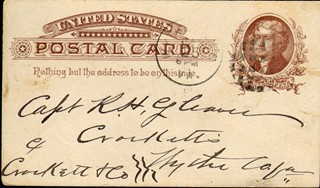 UNITED STATES
POSTAL CARD
Nothing but the address to be on this side.
Capt R. H. Gleaves
Crocketts
Crockett & Co
Wythe Co Va